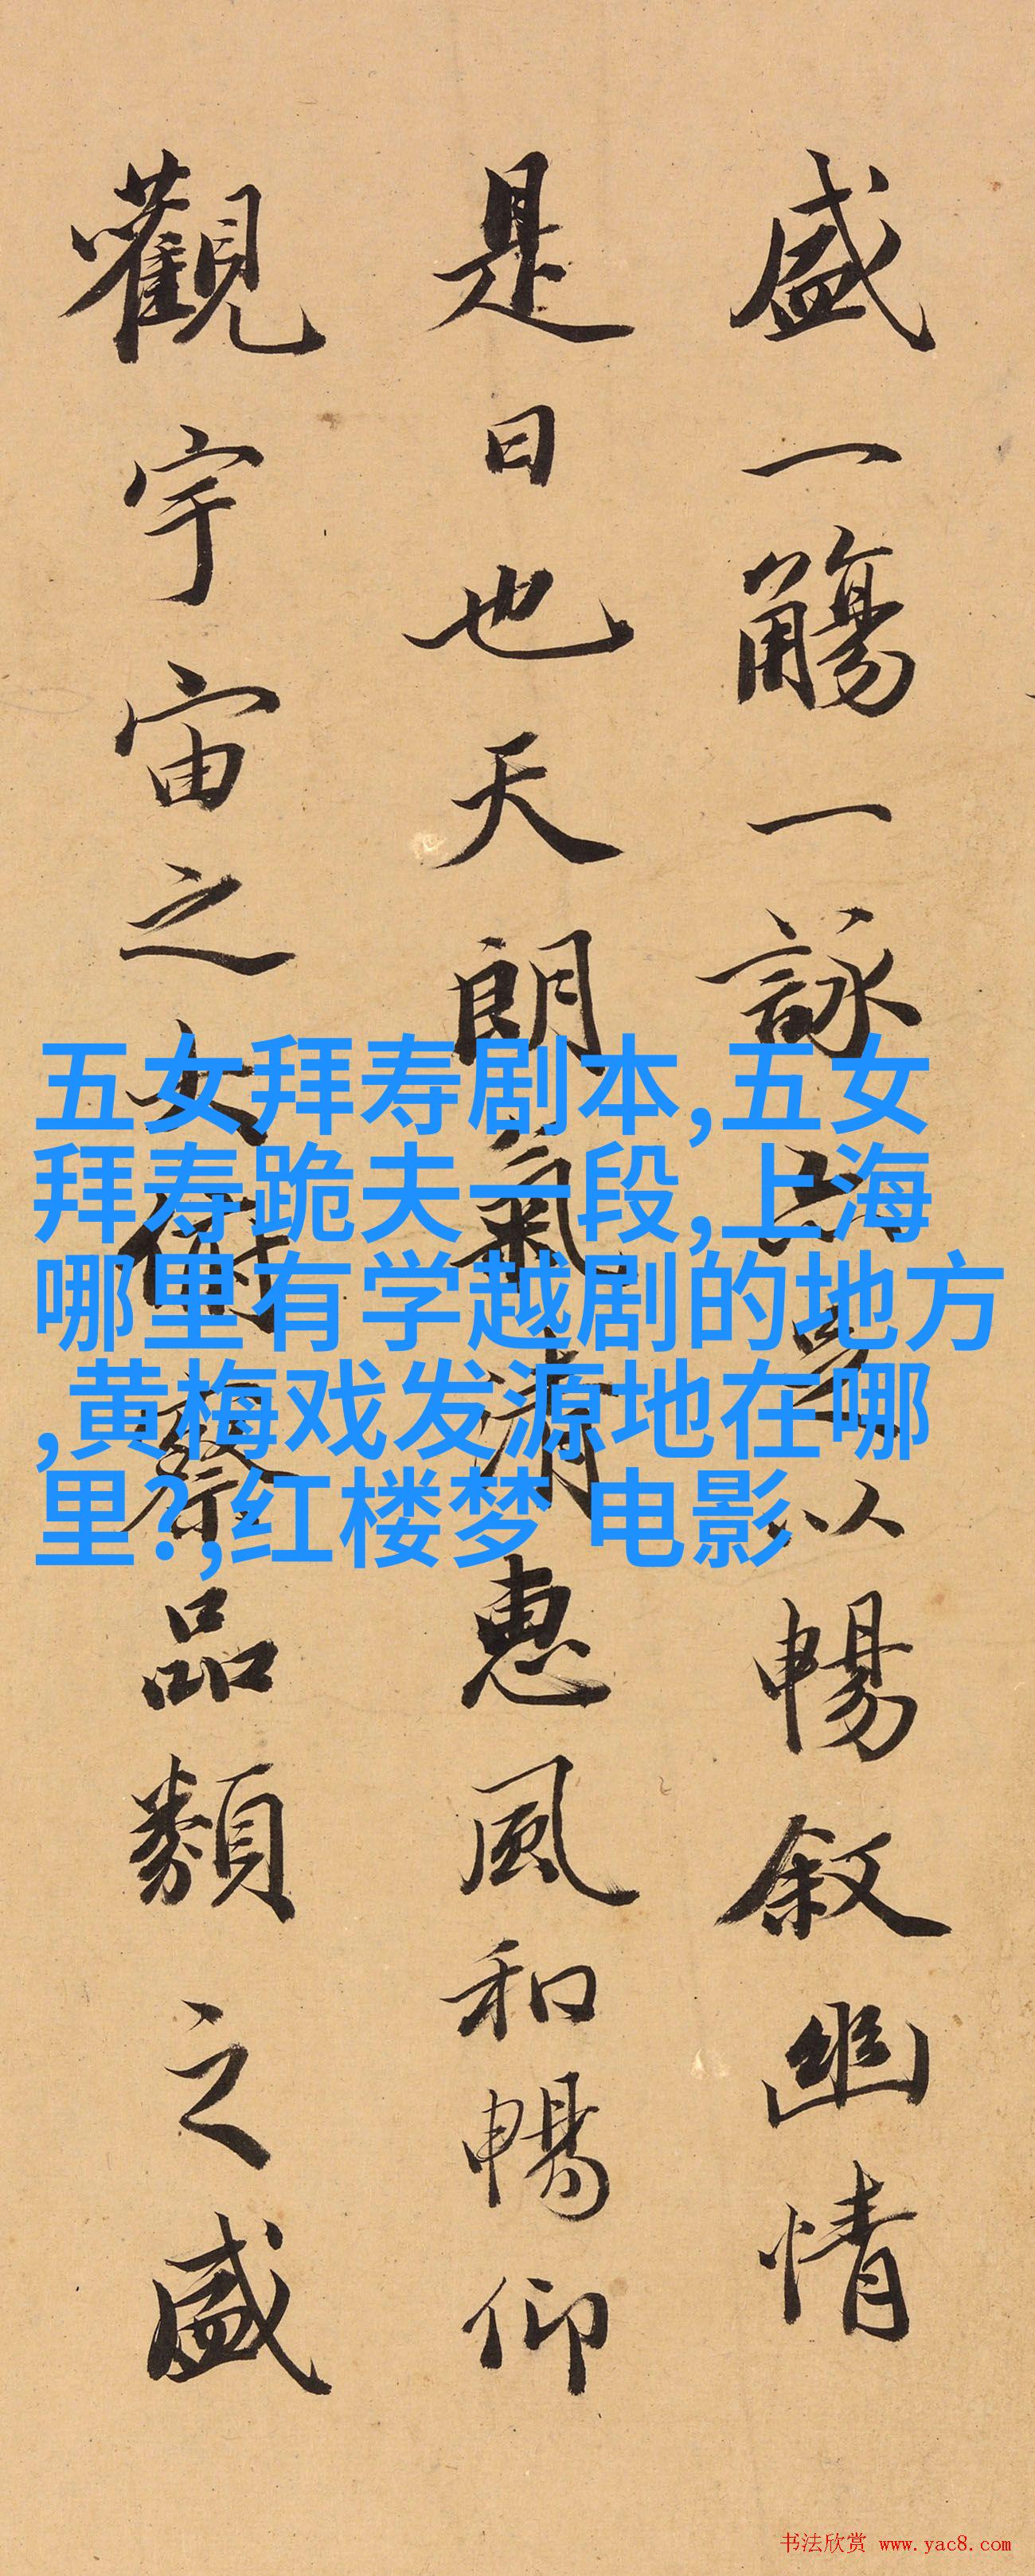 盛一觴一詠亦足以暢叙幽情
是日也天朗氣清惠風和暢仰
觀宇宙之大俯察品類之盛
五女拜寿剧本,五女
拜寿跪夫一段,上海
哪里有学越剧的地方
,黄梅戏发源地在哪
里?,红楼梦 电影
书法欣赏 www.yac8.com